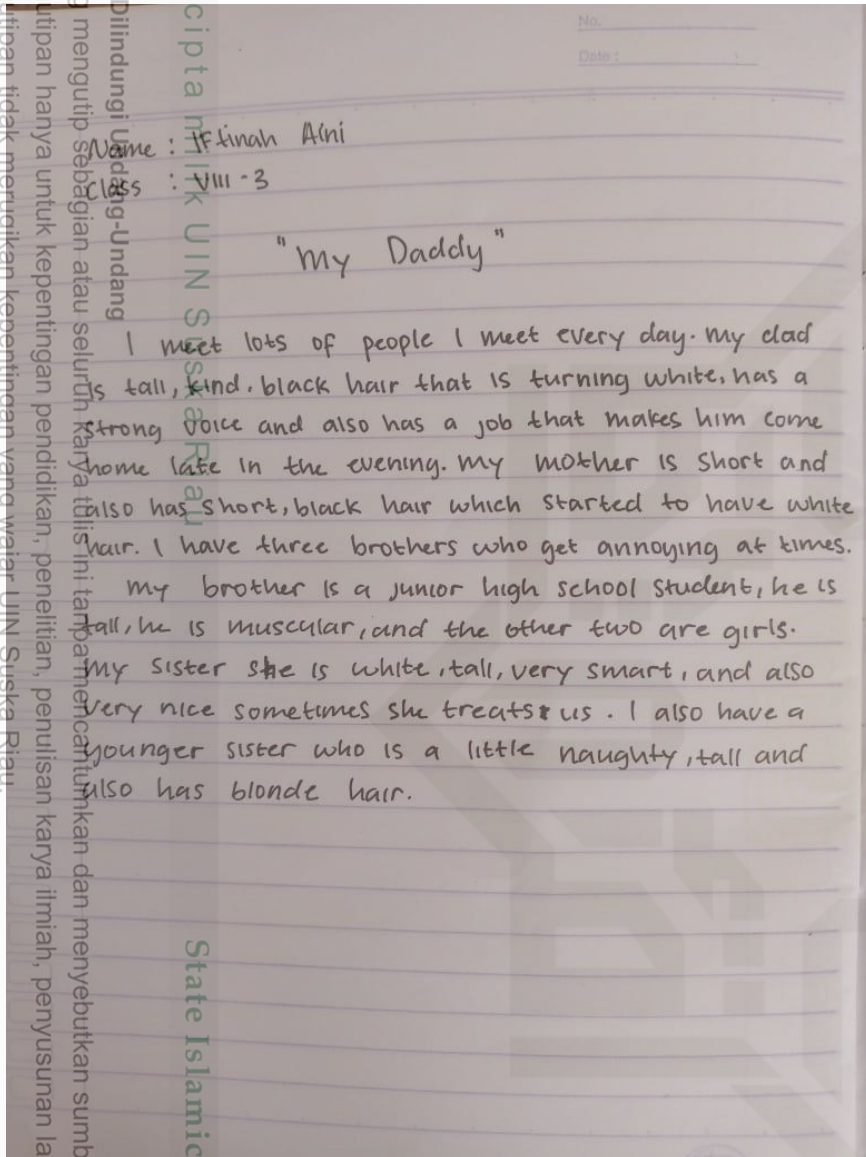 No.
Date :
Name : Iftinah Aini
Class : VIII - 3
"My Daddy"
I meet lots of people I meet every day. My dad
is tall, kind. black hair that is turning white, has a
strong voice and also has a job that makes him come
home late in the evening. My mother is short and
also has short, black hair which started to have white
hair. I have three brothers who get annoying at times.
My brother is a junior high school student, he is
tall, he is muscular, and the other two are girls.
My sister she is white, tall, very smart, and also
very nice sometimes she treats us. I also have a
younger sister who is a little naughty, tall and
also has blonde hair.
cipta milik UIN Suska Riau
State Islamic
Dilindungi Undang-Undang
mengutip sebagian atau seluruh karya tulis ini tanpa mencantumkan dan menyebutkan sumb
utipan hanya untuk kepentingan pendidikan, penelitian, penulisan karya ilmiah, penyusunan la
utipan tidak merugikan kepentingan yang wajar UIN Suska Riau.